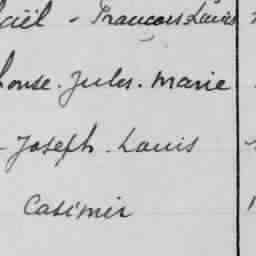 aël - François Louis
honse. Jules. Marie
- Joseph. Louis
Casimir